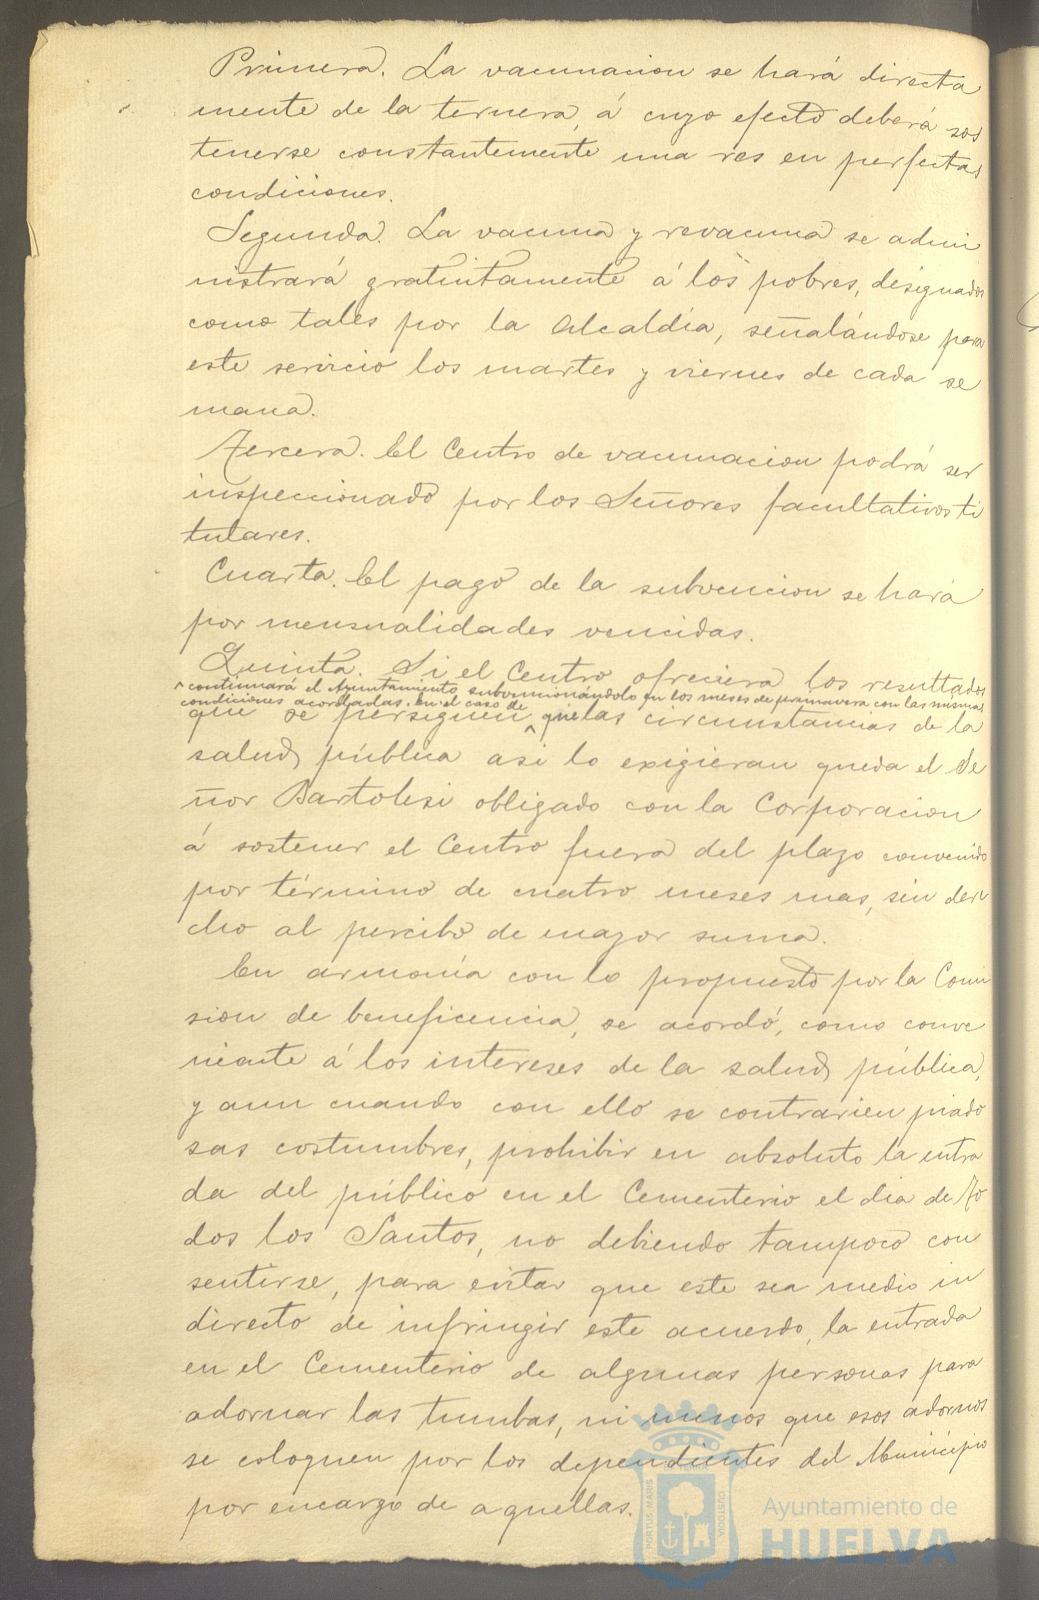 Primera. La vacunacion se hará directa
mente de la ternera, á cuyo efecto deberá sos
tenerse constantemente una res en perfectas
condiciones.
Segunda. La vacuna y revacuna se admi
nistrará gratuitamente á los pobres, designados
como tales por la Alcaldía, señalándose para
este servicio los martes y viernes de cada se
mana.
Tercera. El Centro de vacunacion podrá ser
inspeccionado por los Señores facultativos ti
tulares.
Cuarta. El pago de la subvencion se hará
por mensualidades vencidas.
Quinta. Si el Centro ofreciera los resultados
^ continuará el Ayuntamiento subvencionándolo en los meses de primavera con las mismas
condiciones acordadas. en el caso de
que se persiguen ^ que las circunstancias de la
salud pública asi lo exigieran queda el Se
ñor Bartolesi obligado con la Corporacion
á sostener el Centro fuera del plazo convenido
por término de cuatro meses mas, sin dere
cho al percibo de mayor suma.
En armonía con lo propuesto por la Comi
sion de beneficencia, se acordó, como conve
niente á los intereses de la salud pública,
y aun cuando con ello se contrarien piado
sas costumbres, prohibir en absoluto la entra
da del público en el Cementerio el dia de To
dos los Santos, no debiendo tampoco con
sentirse, para evitar que este sea medio in
directo de infringir este acuerdo, la entrada
en el Cementerio de algunas personas para
adornar las tumbas, ni menos que esos adornos
se coloquen por los dependientes del Municipio
por encargo de aquellas.
PORTUS MARIS CUSTODIA
Ayuntamiento de
HUELVA